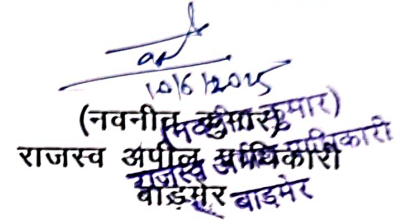 10/6/2025
(नवनीत कुमार)
राजस्व अपील प्राधिकारी
बाड़मेर
(नवनीत कुमार)
राजस्व अपील प्राधिकारी
बाड़मेर